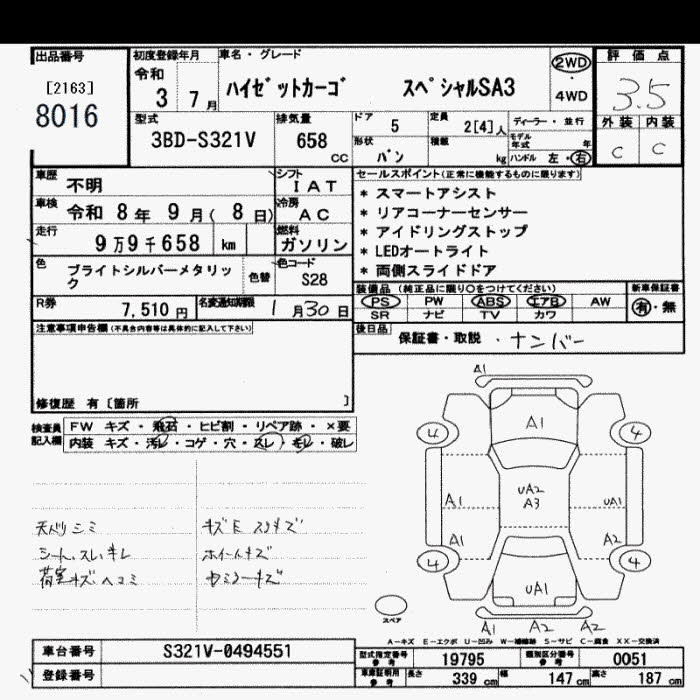 出品番号
[2163]
8016
初度登録年月
令和
3 7 月
車名・グレード
ハイゼットカーゴ スペシャルSA3
2WD
4WD
評価点
3.5
外装 内装
C C
型式
3BD-S321V
排気量
658
CC
ドア
5
定員
2[4]人
ディーラー・並行
形状
バン
積載
kg
モデル年式 年
ハンドル 左・右
車歴
不明
シフト
IAT
車検
令和 8 年 9 月( 8 日)
冷房
AC
走行
9万9千658 km
燃料
ガソリン
色
ブライトシルバーメタリック
色替
色コード
S28
R券
7,510 円
名変通知期限
1 月 30 日
セールスポイント(正常に機能するものに限ります)
* スマートアシスト
* リアコーナーセンサー
* アイドリングストップ
* LEDオートライト
* 両側スライドドア
装備品(純正品に限り○をつけてください)
新車保証書
PS PW ABS エアB AW
SR ナビ TV カワ
有・無
後日品
保証書・取説 ・ナンバー
注意事項申告欄(不具合内容等は具体的に記入して下さい)
修復歴 有〔箇所 〕
検査員記入欄
FW キズ・飛石・ヒビ割・リペア跡・×要
内装 キズ・汚レ・コゲ・穴・スレ・キレ・破レ
天バリシミ
シート、スレ、キレ
荷室キズヘコミ
ホイールキズ
A1
A1
4 4
A1
UA2
A3
UA1
A1
A2
4 4
UA1
スペア
A1 A2 A2
A-キズ E-エクボ U-凹み W-補修跡 S-サビ C-腐食 XX-交換済
車台番号
S321V-0494551
登録番号
型式指定番号
参考
19795
類別区分番号
参考
0051
車庫証明用
参考
長さ 339 cm 幅 147 cm 高さ 187 cm